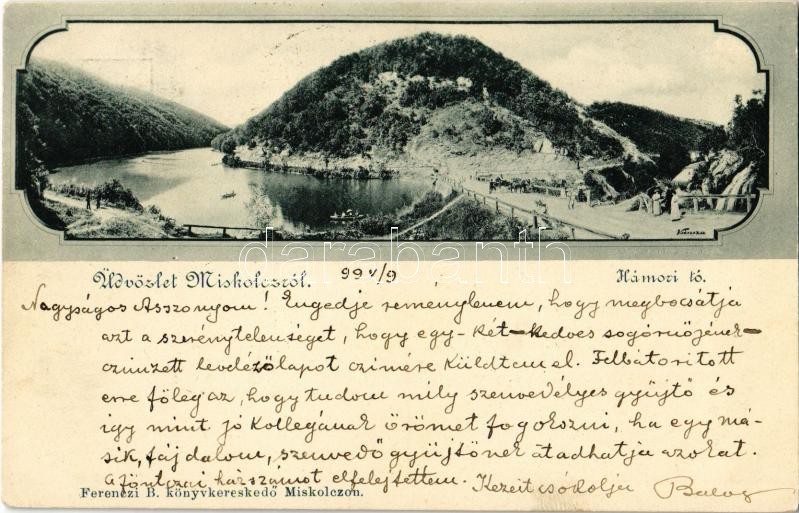 Vancza
darabanth
Üdvözlet Miskolczról. 99 V/9 Hámori tó.
Nagyságos Asszonyom! Engedje reménylenem, hogy megbocsátja
azt a szerénytelenséget, hogy egy-két kedves sogórnőjének
czimzett levelézőlapot czimére küldtem el. Felbátoritott
erre főleg az, hogy tudom mily szenvedélyes gyüjtő és
igy mint jó kollegának örömet fog okozni, ha egy má-
sik, fájdalom, szenvedő gyüjtőnek átadhatja azokat.
A föntczai házszámot elfelejtettem. Kezeit csókolja Balog
Ferenczi B. könyvkereskedő Miskolczon.